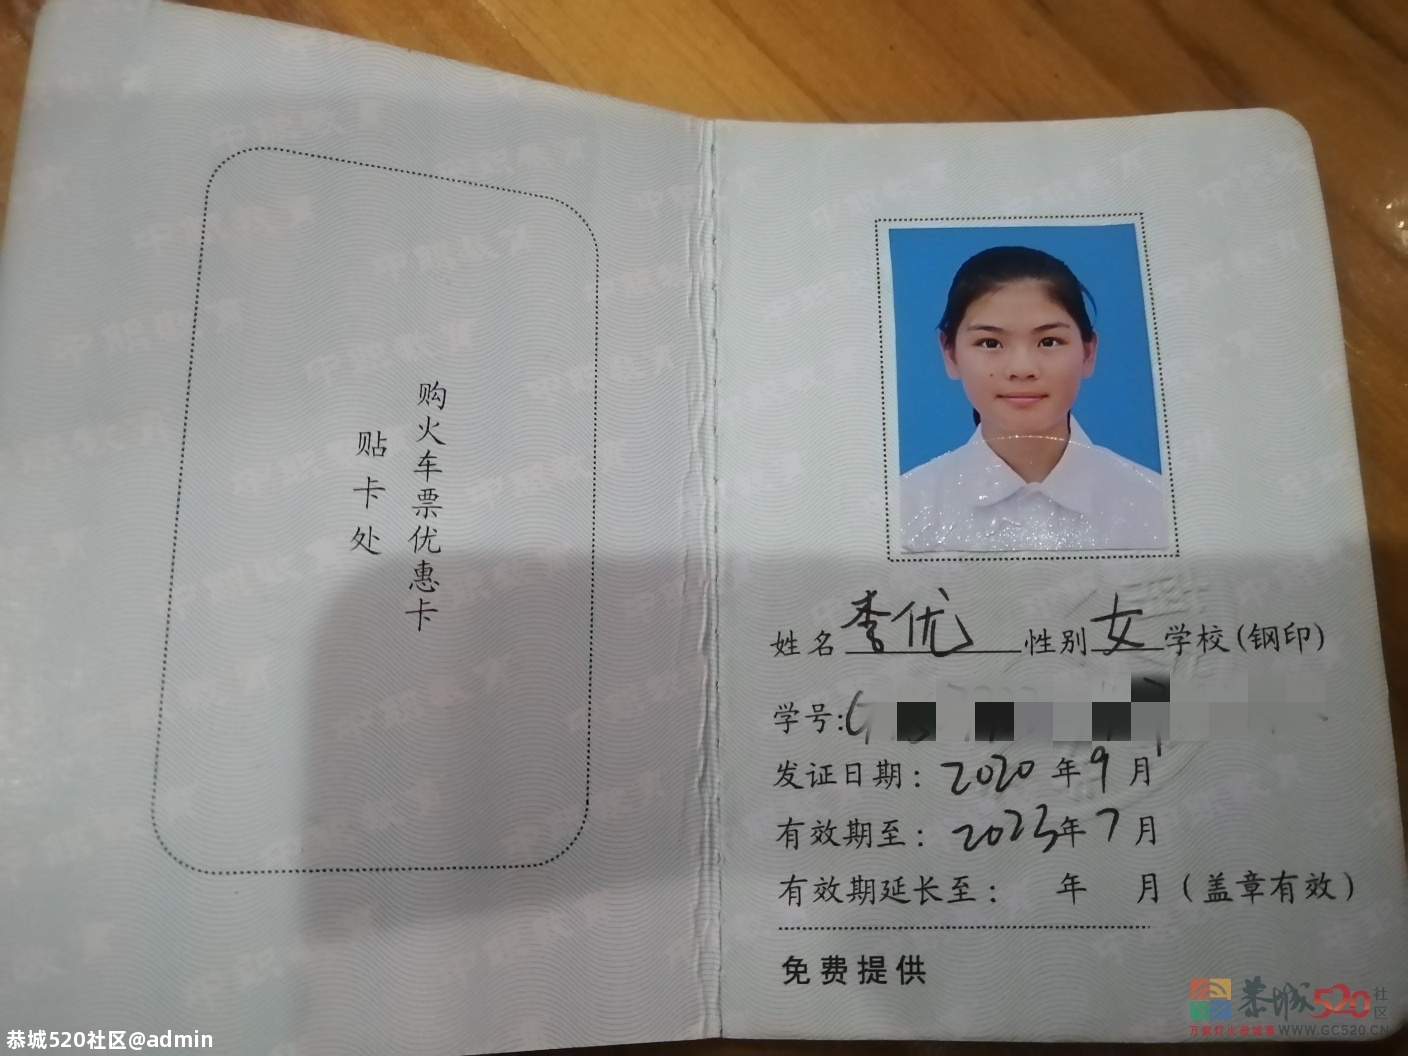 购火车票优惠卡
贴卡处
姓名 李优 性别 女 学校(钢印)
学号:
发证日期: 2020年9月
有效期至: 2023年7月
有效期延长至: 年 月(盖章有效)
免费提供
恭城520社区
万家灯火恭城事 WWW.GC520.CN
恭城520社区@admin